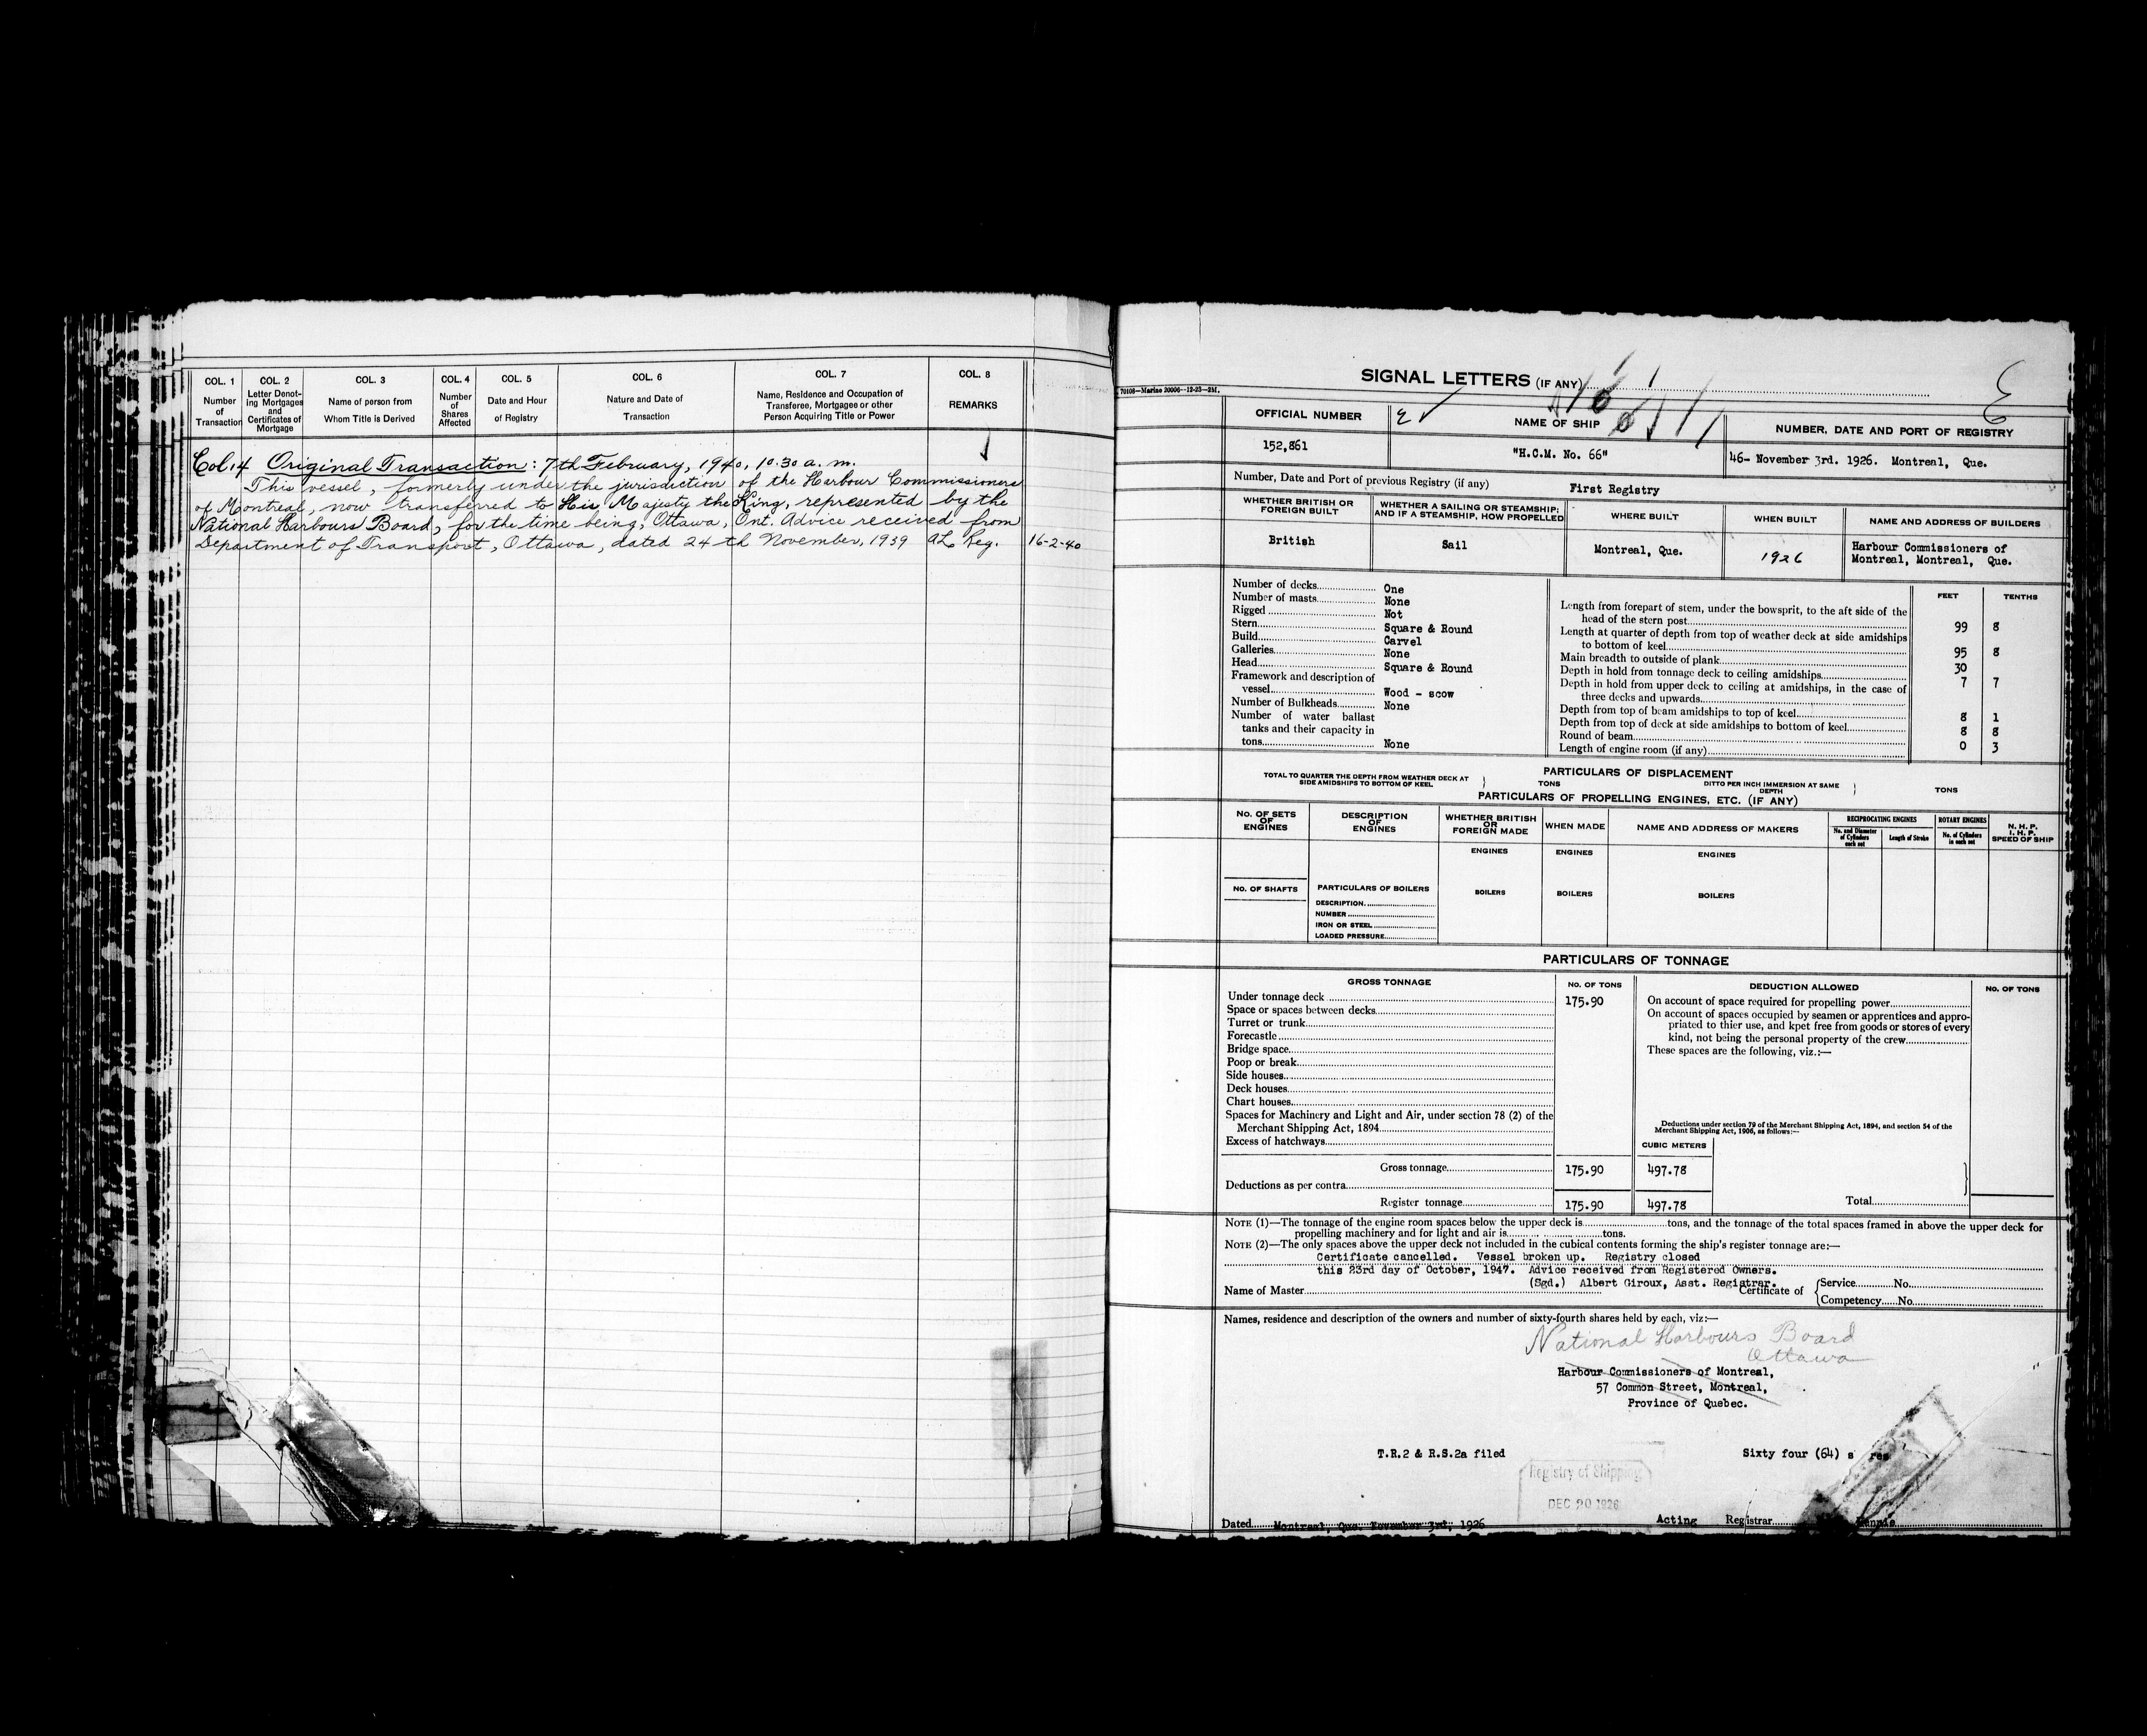 COL. 1
Number
of
Transaction
COL. 2
Letter Denot-
ing Mortgages
and
Certificates of
Mortgage
COL. 3
Name of person from
Whom Title is Derived
COL. 4
Number
of
Shares
Affected
COL. 5
Date and Hour
of Registry
COL. 6
Nature and Date of
Transaction
COL. 7
Name, Residence and Occupation of
Transferee, Mortgagee or other
Person Acquiring Title or Power
COL. 8
REMARKS
Col. 4 Original Transaction: 7th February, 1940, 10.30 a.m.
This vessel, formerly under the jurisdiction of the Harbour Commissioners
of Montreal, now transferred to His Majesty the King, represented by the
National Harbours Board, for the time being, Ottawa, Ont. Advice received from
Department of Transport, Ottawa, dated 24th November, 1939 AL Reg. 16-2-40
70108—Marine 20006—12-23—2M.
SIGNAL LETTERS (IF ANY)
OFFICIAL NUMBER
152,861
NAME OF SHIP
"H.C.M. No. 66"
NUMBER, DATE AND PORT OF REGISTRY
46- November 3rd. 1926. Montreal, Que.
Number, Date and Port of previous Registry (if any) First Registry
WHETHER BRITISH OR
FOREIGN BUILT
British
WHETHER A SAILING OR STEAMSHIP;
AND IF A STEAMSHIP, HOW PROPELLED
Sail
WHERE BUILT
Montreal, Que.
WHEN BUILT
1926
NAME AND ADDRESS OF BUILDERS
Harbour Commissioners of
Montreal, Montreal, Que.
Number of decks One
Number of masts None
Rigged Not
Stern Square & Round
Build Carvel
Galleries None
Head Square & Round
Framework and description of
vessel Wood - scow
Number of Bulkheads None
Number of water ballast
tanks and their capacity in
tons None
FEET TENTHS
Length from forepart of stem, under the bowsprit, to the aft side of the
head of the stern post 99 8
Length at quarter of depth from top of weather deck at side amidships
to bottom of keel 95 8
Main breadth to outside of plank 30
Depth in hold from tonnage deck to ceiling amidships 7 7
Depth in hold from upper deck to ceiling at amidships, in the case of
three decks and upwards
Depth from top of beam amidships to top of keel 8 1
Depth from top of deck at side amidships to bottom of keel 8 8
Round of beam 0 3
Length of engine room (if any)
PARTICULARS OF DISPLACEMENT
TOTAL TO QUARTER THE DEPTH FROM WEATHER DECK AT
SIDE AMIDSHIPS TO BOTTOM OF KEEL
TONS
DITTO PER INCH IMMERSION AT SAME
DEPTH
TONS
PARTICULARS OF PROPELLING ENGINES, ETC. (IF ANY)
NO. OF SETS
OF
ENGINES
DESCRIPTION
OF
ENGINES
WHETHER BRITISH
OR
FOREIGN MADE
WHEN MADE
NAME AND ADDRESS OF MAKERS
RECIPROCATING ENGINES
No. and Diameter
of Cylinders
each set
Length of Stroke
ROTARY ENGINES
No. of Cylinders
in each set
N. H. P.
I. H. P.
SPEED OF SHIP
ENGINES ENGINES ENGINES
NO. OF SHAFTS
PARTICULARS OF BOILERS
BOILERS BOILERS BOILERS
DESCRIPTION
NUMBER
IRON OR STEEL
LOADED PRESSURE
PARTICULARS OF TONNAGE
GROSS TONNAGE NO. OF TONS
Under tonnage deck 175.90
Space or spaces between decks
Turret or trunk
Forecastle
Bridge space
Poop or break
Side houses
Deck houses
Chart houses
Spaces for Machinery and Light and Air, under section 78 (2) of the
Merchant Shipping Act, 1894
Excess of hatchways
Gross tonnage 175.90 497.78
Deductions as per contra
Register tonnage 175.90 497.78
CUBIC METERS
DEDUCTION ALLOWED NO. OF TONS
On account of space required for propelling power
On account of spaces occupied by seamen or apprentices and appro-
priated to thier use, and kpet free from goods or stores of every
kind, not being the personal property of the crew
These spaces are the following, viz.:—
Deductions under section 79 of the Merchant Shipping Act, 1894, and section 54 of the
Merchant Shipping Act, 1906, as follows:—
Total
NOTE (1)—The tonnage of the engine room spaces below the upper deck is tons, and the tonnage of the total spaces framed in above the upper deck for
propelling machinery and for light and air is tons.
NOTE (2)—The only spaces above the upper deck not included in the cubical contents forming the ship's register tonnage are:—
Certificate cancelled. Vessel broken up. Registry closed
this 23rd day of October, 1947. Advice received from Registered Owners.
(Sgd.) Albert Giroux, Asst. Registrar.
Name of Master Certificate of
Service No.
Competency No.
Names, residence and description of the owners and number of sixty-fourth shares held by each, viz:—
National Harbours Board
Ottawa
Harbour Commissioners of Montreal,
57 Common Street, Montreal,
Province of Quebec.
T.R.2 & R.S.2a filed Sixty four (64) s res
Registry of Shipping
DEC 20 1926
Dated Montreal, Que. November 3rd, 1926 Acting Registrar